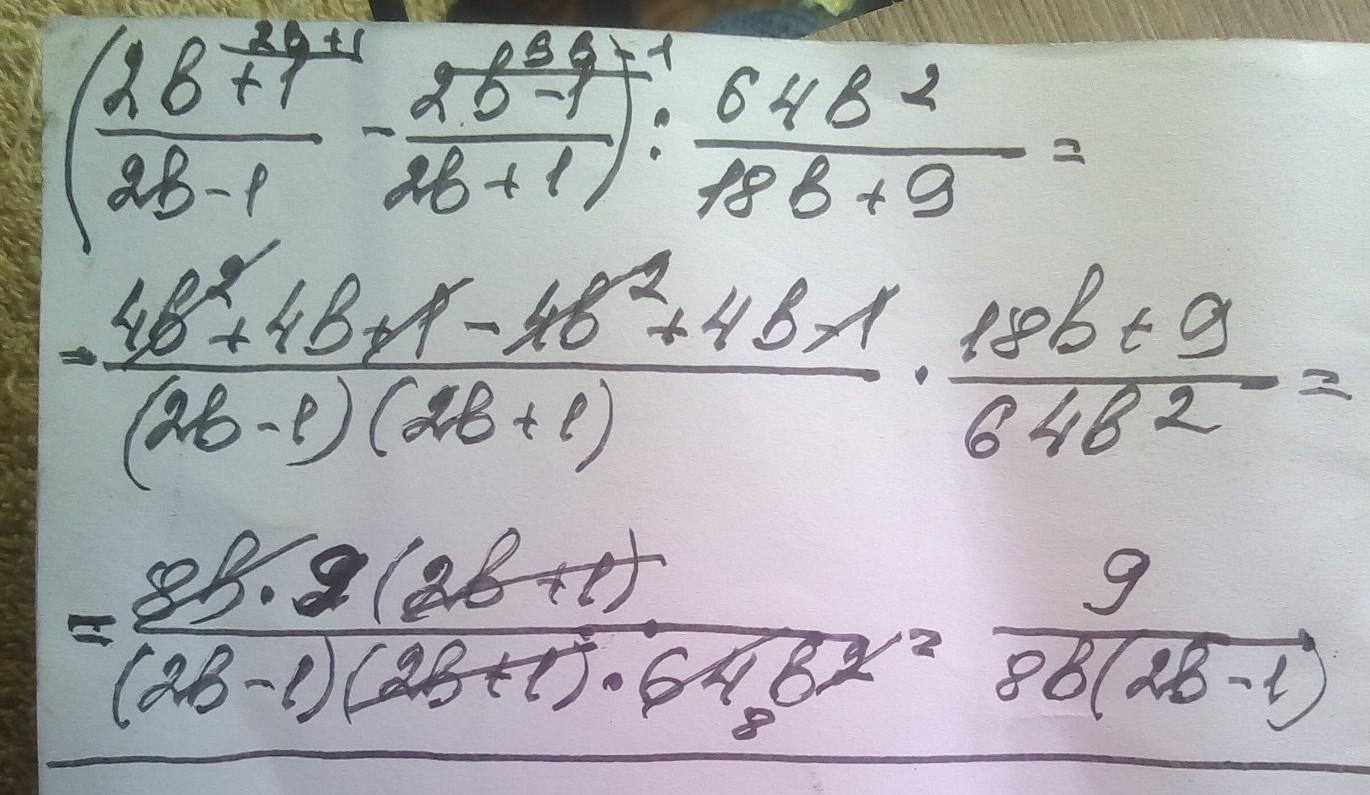 (2b+1 / 2b-1 - 2b-1 / 2b+1) : 64b² / 18b+9 =
= 4b²+4b+1-4b²+4b-1 / (2b-1)(2b+1) · 18b+9 / 64b² =
= 8b·9(2b+1) / (2b-1)(2b+1)·64b² = 9 / 8b(2b-1)
8